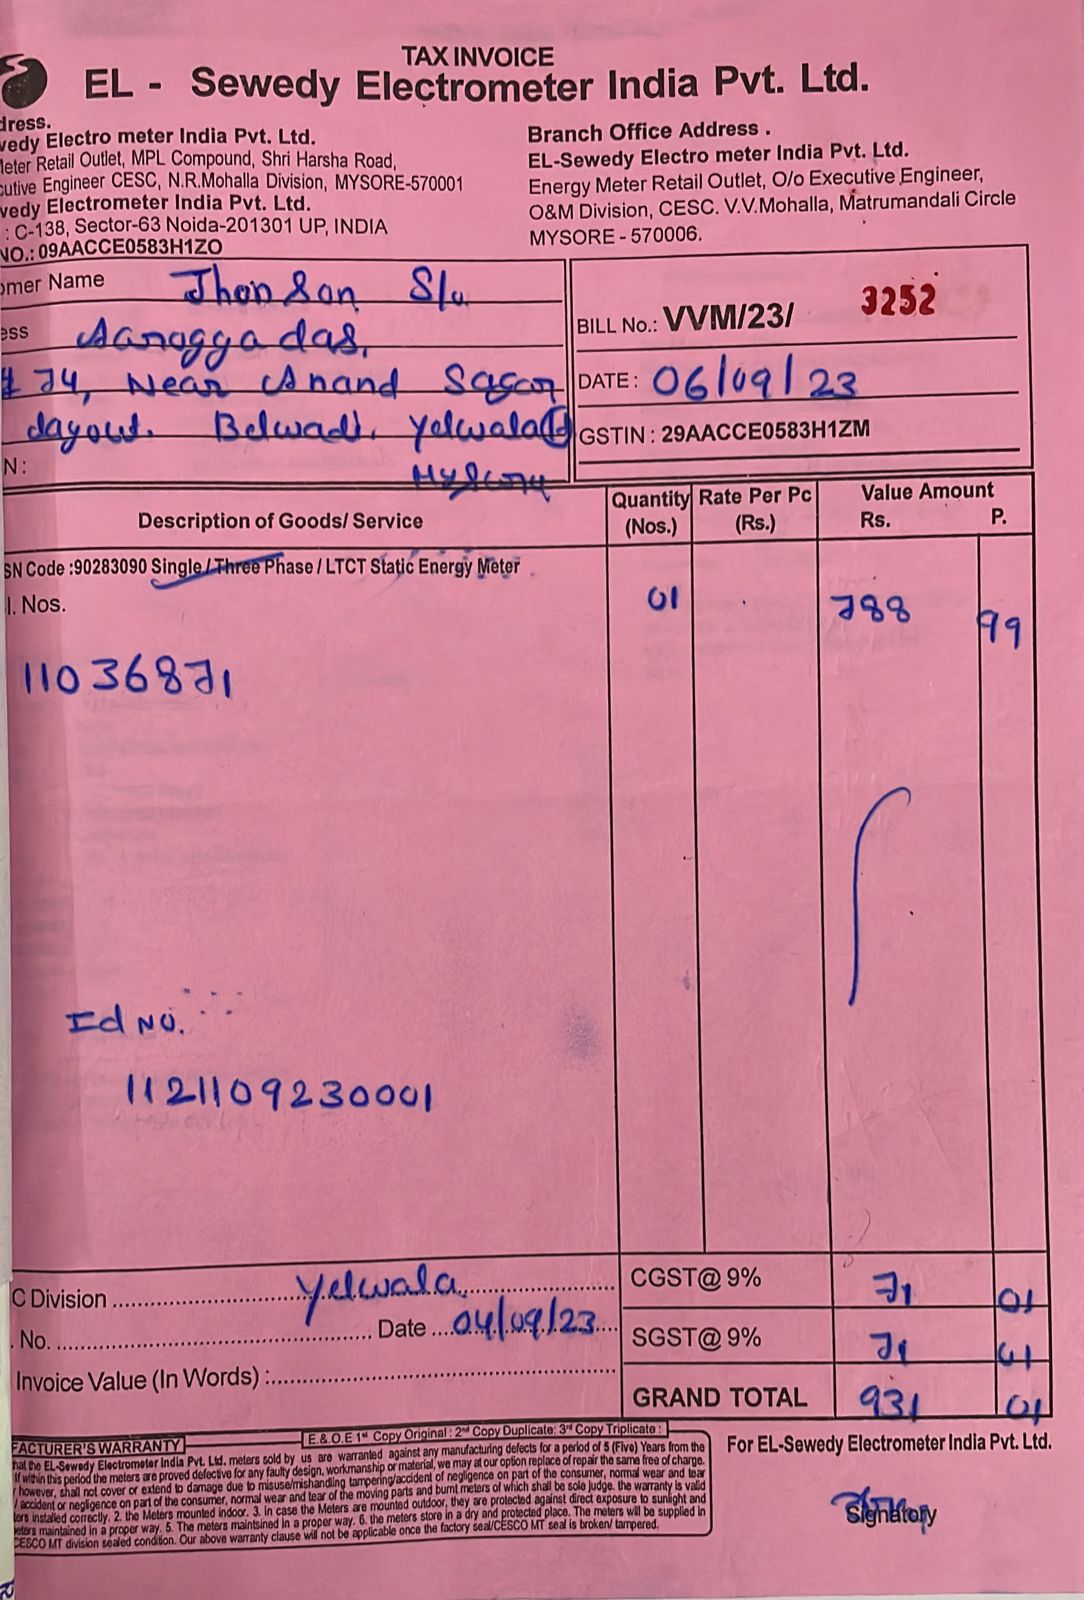 TAX INVOICE
EL - Sewedy Electrometer India Pvt. Ltd.
dress.
vedy Electro meter India Pvt. Ltd.
leter Retail Outlet, MPL Compound, Shri Harsha Road,
cutive Engineer CESC, N.R.Mohalla Division, MYSORE-570001
vedy Electrometer India Pvt. Ltd.
: C-138, Sector-63 Noida-201301 UP, INDIA
NO.: 09AACCE0583H1ZO
Branch Office Address .
EL-Sewedy Electro meter India Pvt. Ltd.
Energy Meter Retail Outlet, O/o Executive Engineer,
O&M Division, CESC. V.V.Mohalla, Matrumandali Circle
MYSORE - 570006.
omer Name Jhonson S/o
ess Aaroggadas,
# 74, Near Anand Sagar
Layout. Belwadi, Yelwala
N: Mysore
BILL No.: VVM/23/ 3252
DATE : 06/09/23
GSTIN : 29AACCE0583H1ZM
Description of Goods/ Service Quantity (Nos.) Rate Per Pc (Rs.) Value Amount Rs. P.
SN Code :90283090 Single / Three Phase / LTCT Static Energy Meter
l. Nos. 01 788 99
11036871
Id No.
1121109230001
C Division Yelwala
. No. Date 04/09/23
Invoice Value (In Words) :
CGST@ 9% 71 01
SGST@ 9% 71 01
GRAND TOTAL 931 01
E.& O.E 1st Copy Original : 2nd Copy Duplicate: 3rd Copy Triplicate :
FACTURER'S WARRANTY
hat the EL-Sewedy Electrometer India Pvt. Ltd. meters sold by us are warranted against any manufacturing defects for a period of 5 (Five) Years from the
If within this period the meters are proved defective for any faulty design, workmanship or material, we may at our option replace of repair the same free of charge.
however, shall not cover or extend to damage due to misuse/mishandling tampering/accident of negligence on part of the consumer, normal wear and tear
/ accident or negligence on part of the consumer, normal wear and tear of the moving parts and burnt meters of which shall be sole judge. the warranty is valid
ers installed correctly. 2. the Meters mounted indoor. 3. in case the Meters are mounted outdoor, they are protected against direct exposure to sunlight and
eters maintained in a proper way. 5. The meters maintsined in a proper way. 6. the meters store in a dry and protected place. The meters will be supplied in
CESCO MT division sealed condition. Our above warranty clause will not be applicable once the factory seal/CESCO MT seal is broken/ tampered.
For EL-Sewedy Electrometer India Pvt. Ltd.
Signatory